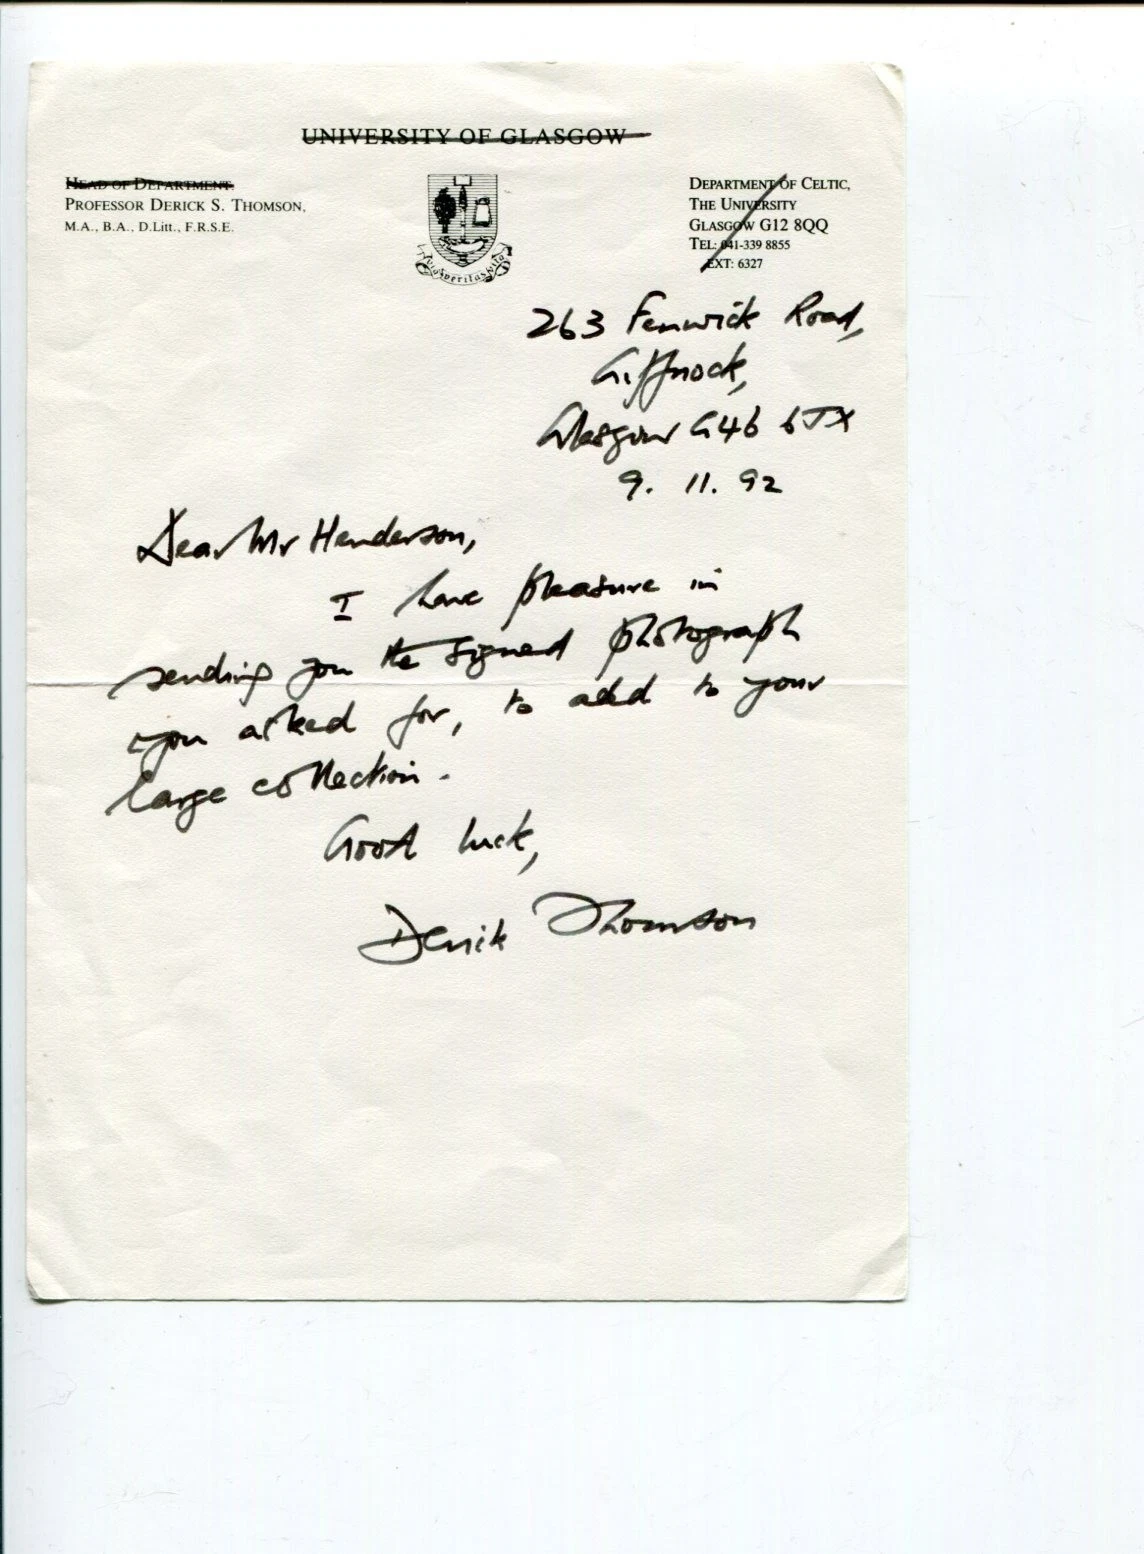 UNIVERSITY OF GLASGOW
HEAD OF DEPARTMENT
PROFESSOR DERICK S. THOMSON,
M.A., B.A., D.Litt., F.R.S.E.
DEPARTMENT OF CELTIC,
THE UNIVERSITY
GLASGOW G12 8QQ
TEL: 041-339 8855
EXT: 6327
Via veritas vita
263 Fenwick Road,
Giffnock,
Glasgow G46 6JX
9. 11. 92
Dear Mr Henderson,
I have pleasure in
sending you the signed photograph
you asked for, to add to your
large collection.
Good luck,
Derick Thomson